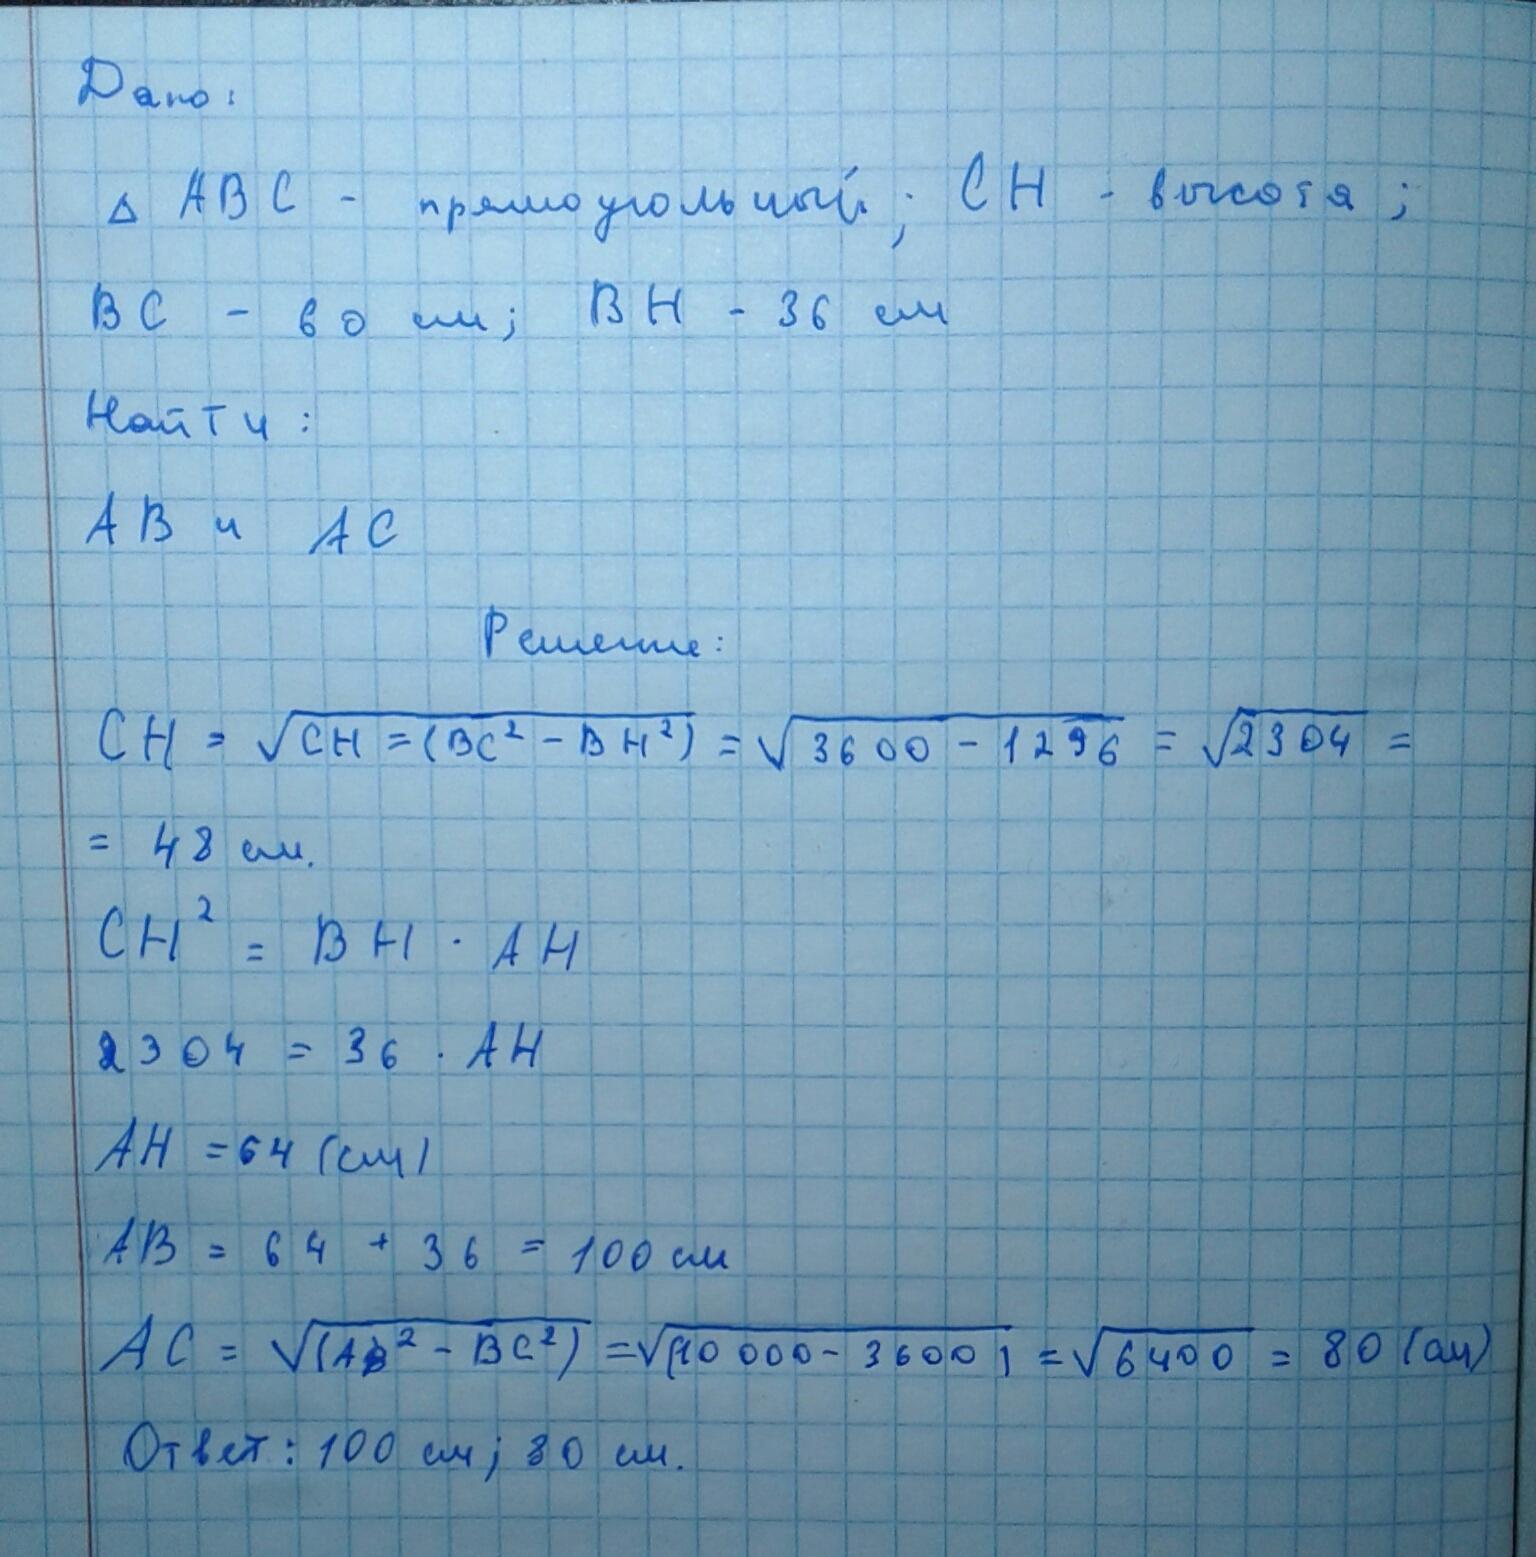 Дано:
△ ABC - прямоугольный; CH - высота;
BC - 60 см; BH - 36 см
Найти:
AB и AC
Решение:
CH = √CH = (BC² - BH²) = √3600 - 1296 = √2304 =
= 48 см.
CH² = BH · AH
2304 = 36 · AH
AH = 64 (см)
AB = 64 + 36 = 100 см
AC = √(AB² - BC²) = √(10 000 - 3600) = √6400 = 80 (см)
Ответ: 100 см; 80 см.